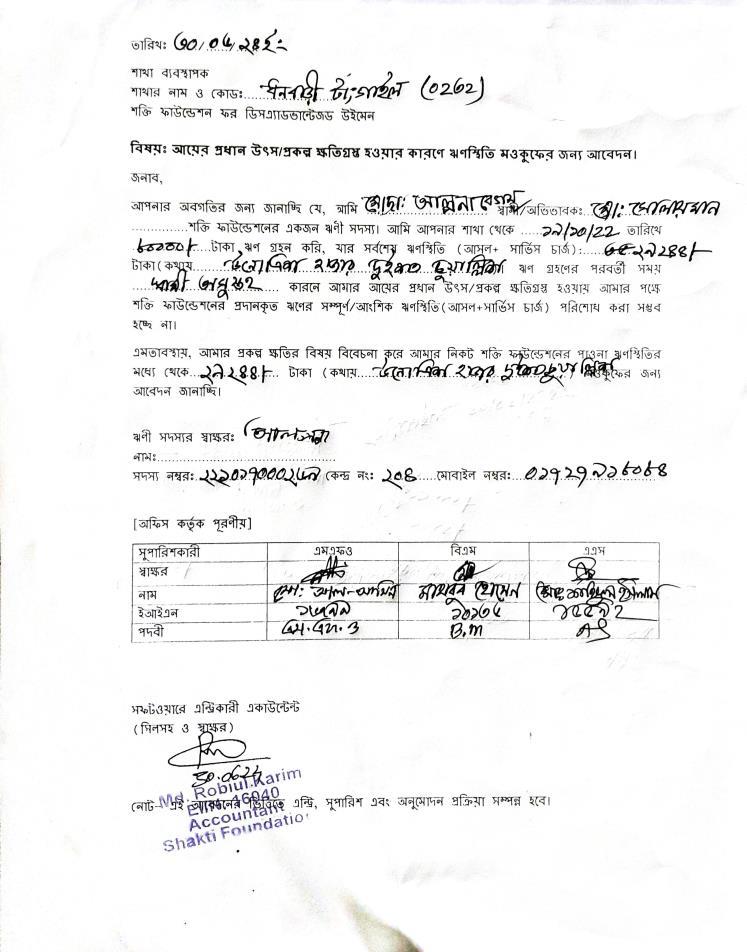 তারিখঃ ৩০/০৬/২৪ইং
শাখা ব্যবস্থাপক
শাখার নাম ও কোডঃ ধনবাড়ী টাংগাইল (0262)
শক্তি ফাউন্ডেশন ফর ডিসএ্যাডভান্টেজড উইমেন
বিষয়ঃ আয়ের প্রধান উৎস/প্রকল্প ক্ষতিগ্রস্ত হওয়ার কারণে ঋণস্থিতি মওকুফের জন্য আবেদন।
জনাব,
আপনার অবগতির জন্য জানাচ্ছি যে, আমি মোছাঃ আল্পনা বেগম স্বামী/অভিভাবকঃ মোঃ সোলায়মান
শক্তি ফাউন্ডেশনের একজন ঋণী সদস্য। আমি আপনার শাখা থেকে ১৯/১০/22 তারিখে
৮০০০০/- টাকা ঋণ গ্রহন করি, যার সর্বশেষ ঋণস্থিতি (আসল+ সার্ভিস চার্জ)ঃ ২৯২৪৪/-
টাকা (কথায় উনত্রিশ হাজার দুইশত চুয়াল্লিশ ঋণ গ্রহণের পরবর্তী সময়
স্বামী অসুস্থ কারনে আমার আয়ের প্রধান উৎস/প্রকল্প ক্ষতিগ্রস্ত হওয়ায় আমার পক্ষে
শক্তি ফাউন্ডেশনের প্রদানকৃত ঋণের সম্পূর্ণ/আংশিক ঋণস্থিতি(আসল+সার্ভিস চার্জ) পরিশোধ করা সম্ভব
হচ্ছে না।
এমতাবস্থায়, আমার প্রকল্প ক্ষতির বিষয় বিবেচনা করে আমার নিকট শক্তি ফাউন্ডেশনের পাওনা ঋণস্থিতির
মধ্যে থেকে ২৯২৪৪/- টাকা (কথায় উনত্রিশ হাজার দুইশত চুয়াল্লিশ) মওকুফের জন্য
আবেদন জানাচ্ছি।
ঋণী সদস্যর স্বাক্ষরঃ আলপনা
নামঃ
সদস্য নম্বরঃ কেন্দ্র নং: ২০৪ মোবাইল নম্বরঃ
[অফিস কর্তৃক পূরণীয়]
সুপারিশকারী এমএফও বিএম এএস
স্বাক্ষর
নাম মোঃ আল-আমিন হোসেন ইসলাম
ইআইএন
পদবী এম.এফ.ও B.M AS
সফটওয়ারে এন্ট্রিকারী একাউন্টেন্ট
(সিলসহ ও স্বাক্ষর)
30.06.24
Md. Robiul Karim
EIN: 46040
নোট- এই আবেদনের ভিত্তিতে এন্ট্রি, সুপারিশ এবং অনুমোদন প্রক্রিয়া সম্পন্ন হবে।
Accountant
Shakti Foundation